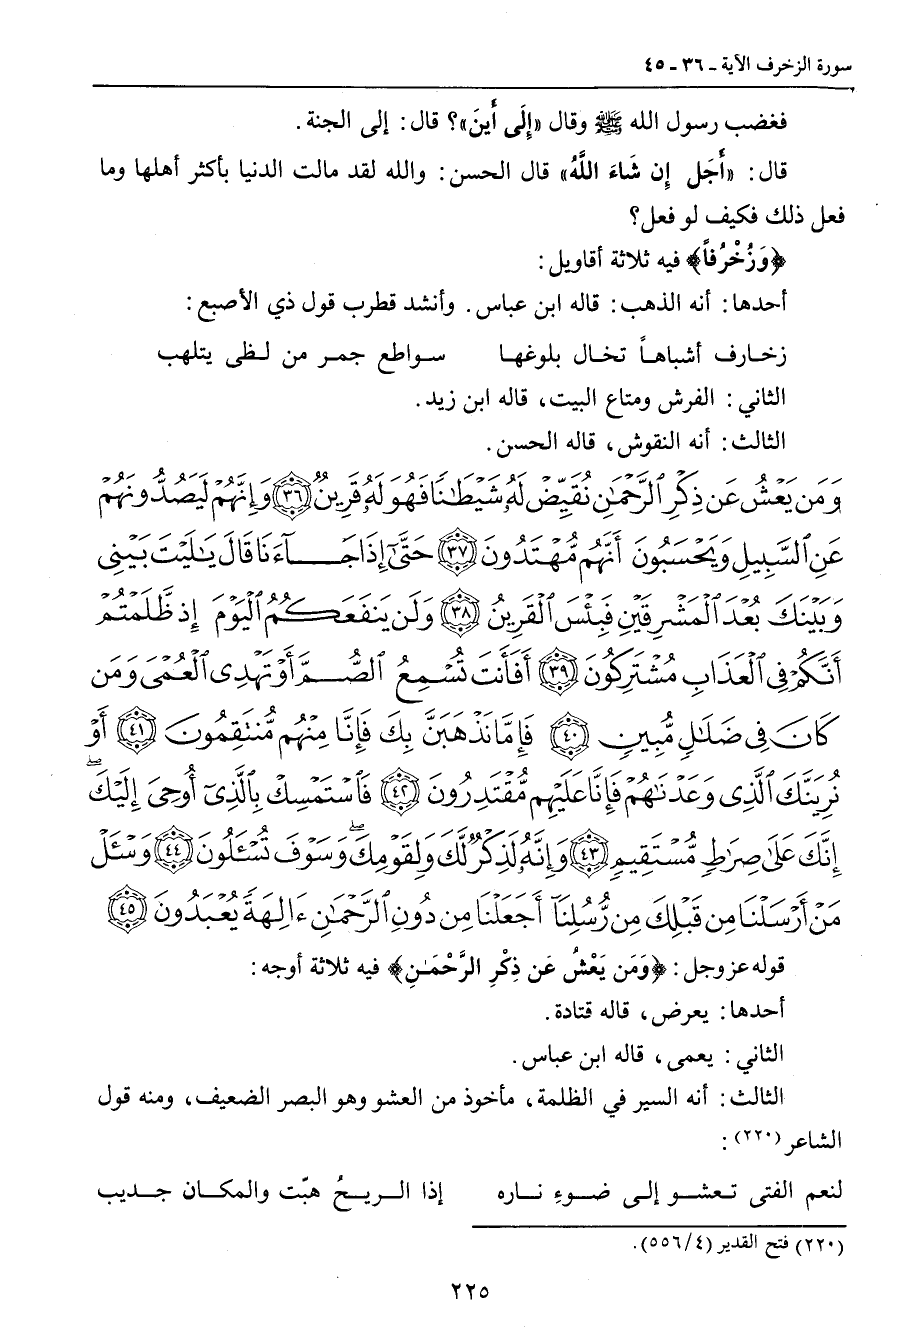 سورة الزخرف الآية ـ ٣٦ ـ ٤٥
فغضب رسول الله ﷺ وقال «إِلَى أَينَ»؟ قال: إلى الجنة.
قال: «أَجَل إِن شَاءَ اللَّهُ» قال الحسن: والله لقد مالت الدنيا بأكثر أهلها وما
فعل ذلك فكيف لو فعل؟
﴿وَزُخْرُفاً﴾ فيه ثلاثة أقاويل:
أحدها: أنه الذهب: قاله ابن عباس. وأنشد قطرب قول ذي الأصبع:
زخارف أشباهاً تخال بلوغها سواطع جمر من لظى يتلهب
الثاني: الفرش ومتاع البيت، قاله ابن زيد.
الثالث: أنه النقوش، قاله الحسن.
وَمَن يَعْشُ عَن ذِكْرِ ٱلرَّحْمَٰنِ نُقَيِّضْ لَهُۥ شَيْطَٰنًا فَهُوَ لَهُۥ قَرِينٌ ٣٦ وَإِنَّهُمْ لَيَصُدُّونَهُمْ
عَنِ ٱلسَّبِيلِ وَيَحْسَبُونَ أَنَّهُم مُّهْتَدُونَ ٣٧ حَتَّىٰٓ إِذَا جَآءَنَا قَالَ يَٰلَيْتَ بَيْنِى
وَبَيْنَكَ بُعْدَ ٱلْمَشْرِقَيْنِ فَبِئْسَ ٱلْقَرِينُ ٣٨ وَلَن يَنفَعَكُمُ ٱلْيَوْمَ إِذ ظَّلَمْتُمْ
أَنَّكُمْ فِى ٱلْعَذَابِ مُشْتَرِكُونَ ٣٩ أَفَأَنتَ تُسْمِعُ ٱلصُّمَّ أَوْ تَهْدِى ٱلْعُمْىَ وَمَن
كَانَ فِى ضَلَٰلٍ مُّبِينٍ ٤٠ فَإِمَّا نَذْهَبَنَّ بِكَ فَإِنَّا مِنْهُم مُّنتَقِمُونَ ٤١ أَوْ
نُرِيَنَّكَ ٱلَّذِى وَعَدْنَٰهُمْ فَإِنَّا عَلَيْهِم مُّقْتَدِرُونَ ٤٢ فَٱسْتَمْسِكْ بِٱلَّذِىٓ أُوحِىَ إِلَيْكَ ۖ
إِنَّكَ عَلَىٰ صِرَٰطٍ مُّسْتَقِيمٍ ٤٣ وَإِنَّهُۥ لَذِكْرٌ لَّكَ وَلِقَوْمِكَ ۖ وَسَوْفَ تُسْـَٔلُونَ ٤٤ وَسْـَٔلْ
مَنْ أَرْسَلْنَا مِن قَبْلِكَ مِن رُّسُلِنَآ أَجَعَلْنَا مِن دُونِ ٱلرَّحْمَٰنِ ءَالِهَةً يُعْبَدُونَ ٤٥
قوله عز وجل: ﴿وَمَن يَعْشُ عَن ذِكْرِ الرَّحْمَـٰنِ﴾ فيه ثلاثة أوجه:
أحدها: يعرض، قاله قتادة.
الثاني: يعمى، قاله ابن عباس.
الثالث: أنه السير في الظلمة، مأخوذ من العشو وهو البصر الضعيف، ومنه قول
الشاعر (٢٢٠):
لنعم الفتى تعشو إلى ضوءِ ناره إذا الريحُ هبّت والمكان جديب
(٢٢٠) فتح القدير (٥٥٦/٤).
٢٢٥